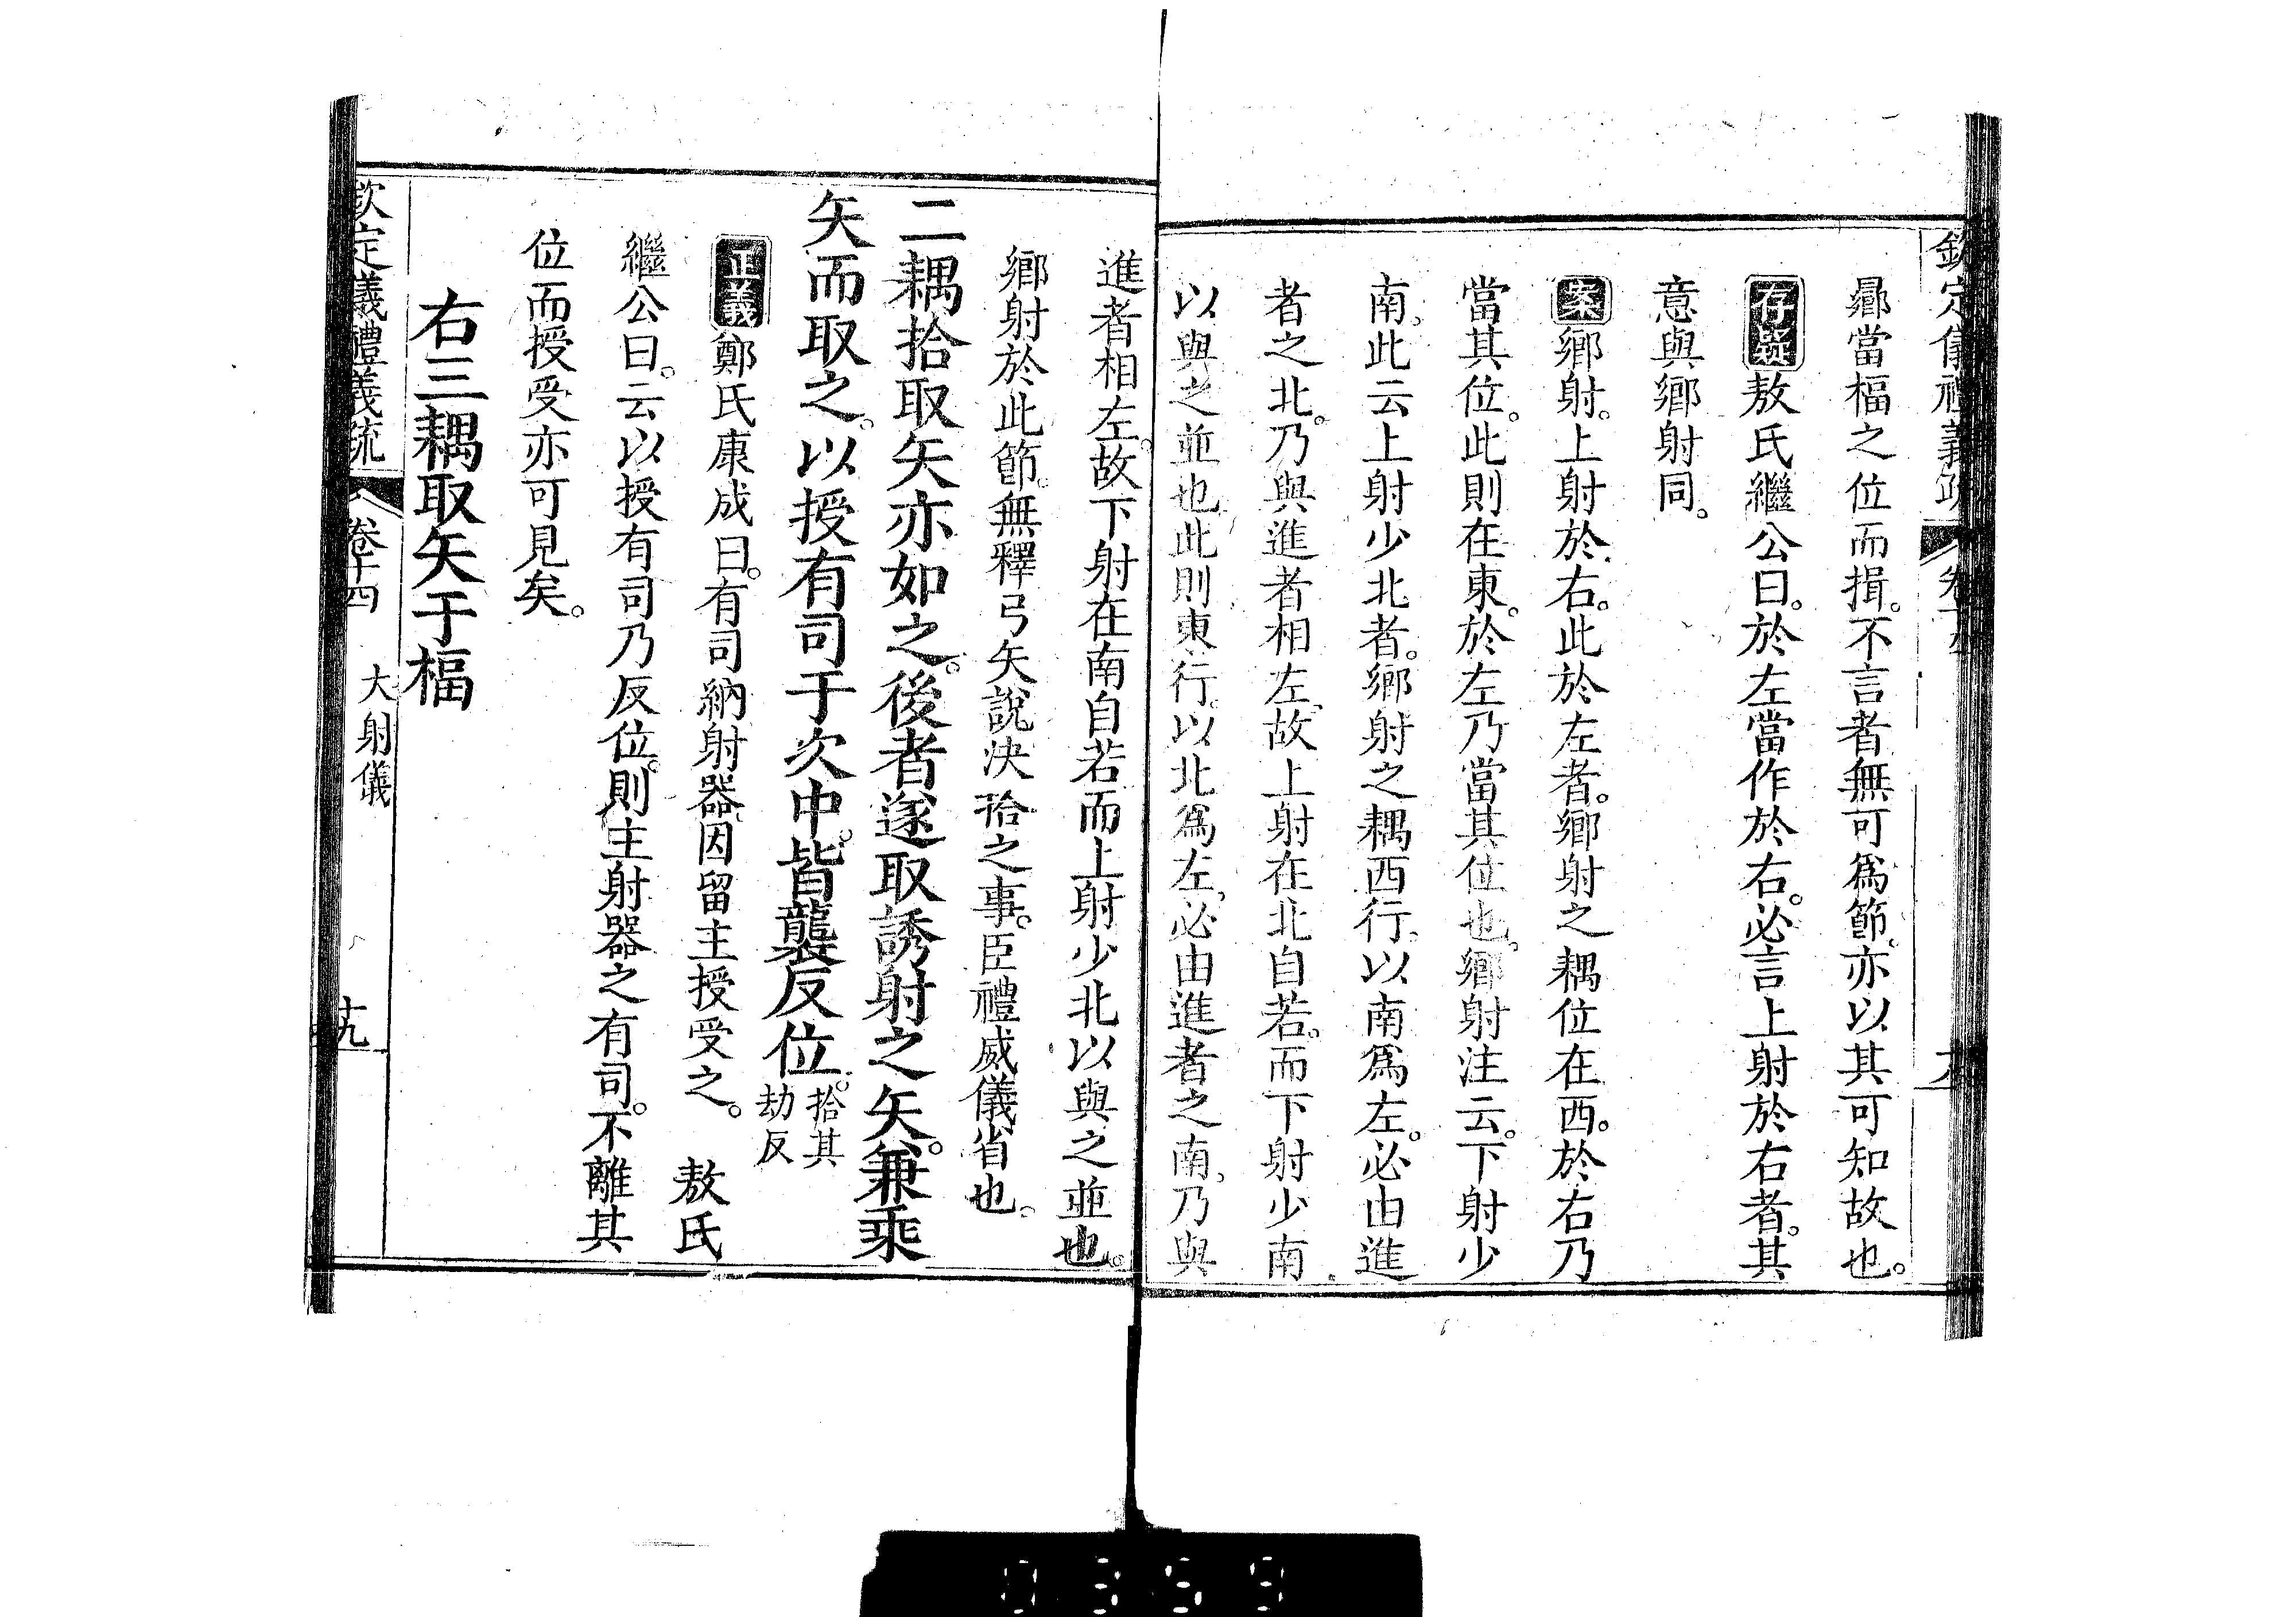 欽定儀禮義疏 卷十四
曏當楅之位而揖。不言者無可爲節。亦以其可知故也。
存疑敖氏繼公曰。於左當作於右。必言上射於右者。其
意與鄉射同。
案鄉射。上射於右。此於左者。鄉射之耦位在西。於右乃
當其位。此則在東。於左乃當其位也。鄉射注云。下射少
南。此云上射少北者。鄉射之耦西行。以南爲左。必由進
者之北。乃與進者相左。故上射在北自若。而下射少南
以與之並也。此則東行。以北爲左。必由進者之南。乃與
進者相左。故下射在南自若而上射少北以與之並也。
鄉射於此節。無釋弓矢說決拾之事。臣禮威儀省也。
二耦拾取矢亦如之。後者遂取誘射之矢。兼乘
矢而取之。以授有司于次中。皆襲反位。拾其
劫反
正義鄭氏康成曰。有司納射器。因留主授受之。 敖氏
繼公曰。云以授有司乃反位。則主射器之有司。不離其
位而授受亦可見矣。
右三耦取矢于楅
欽定儀禮義疏 卷十四 大射儀 十九
0359